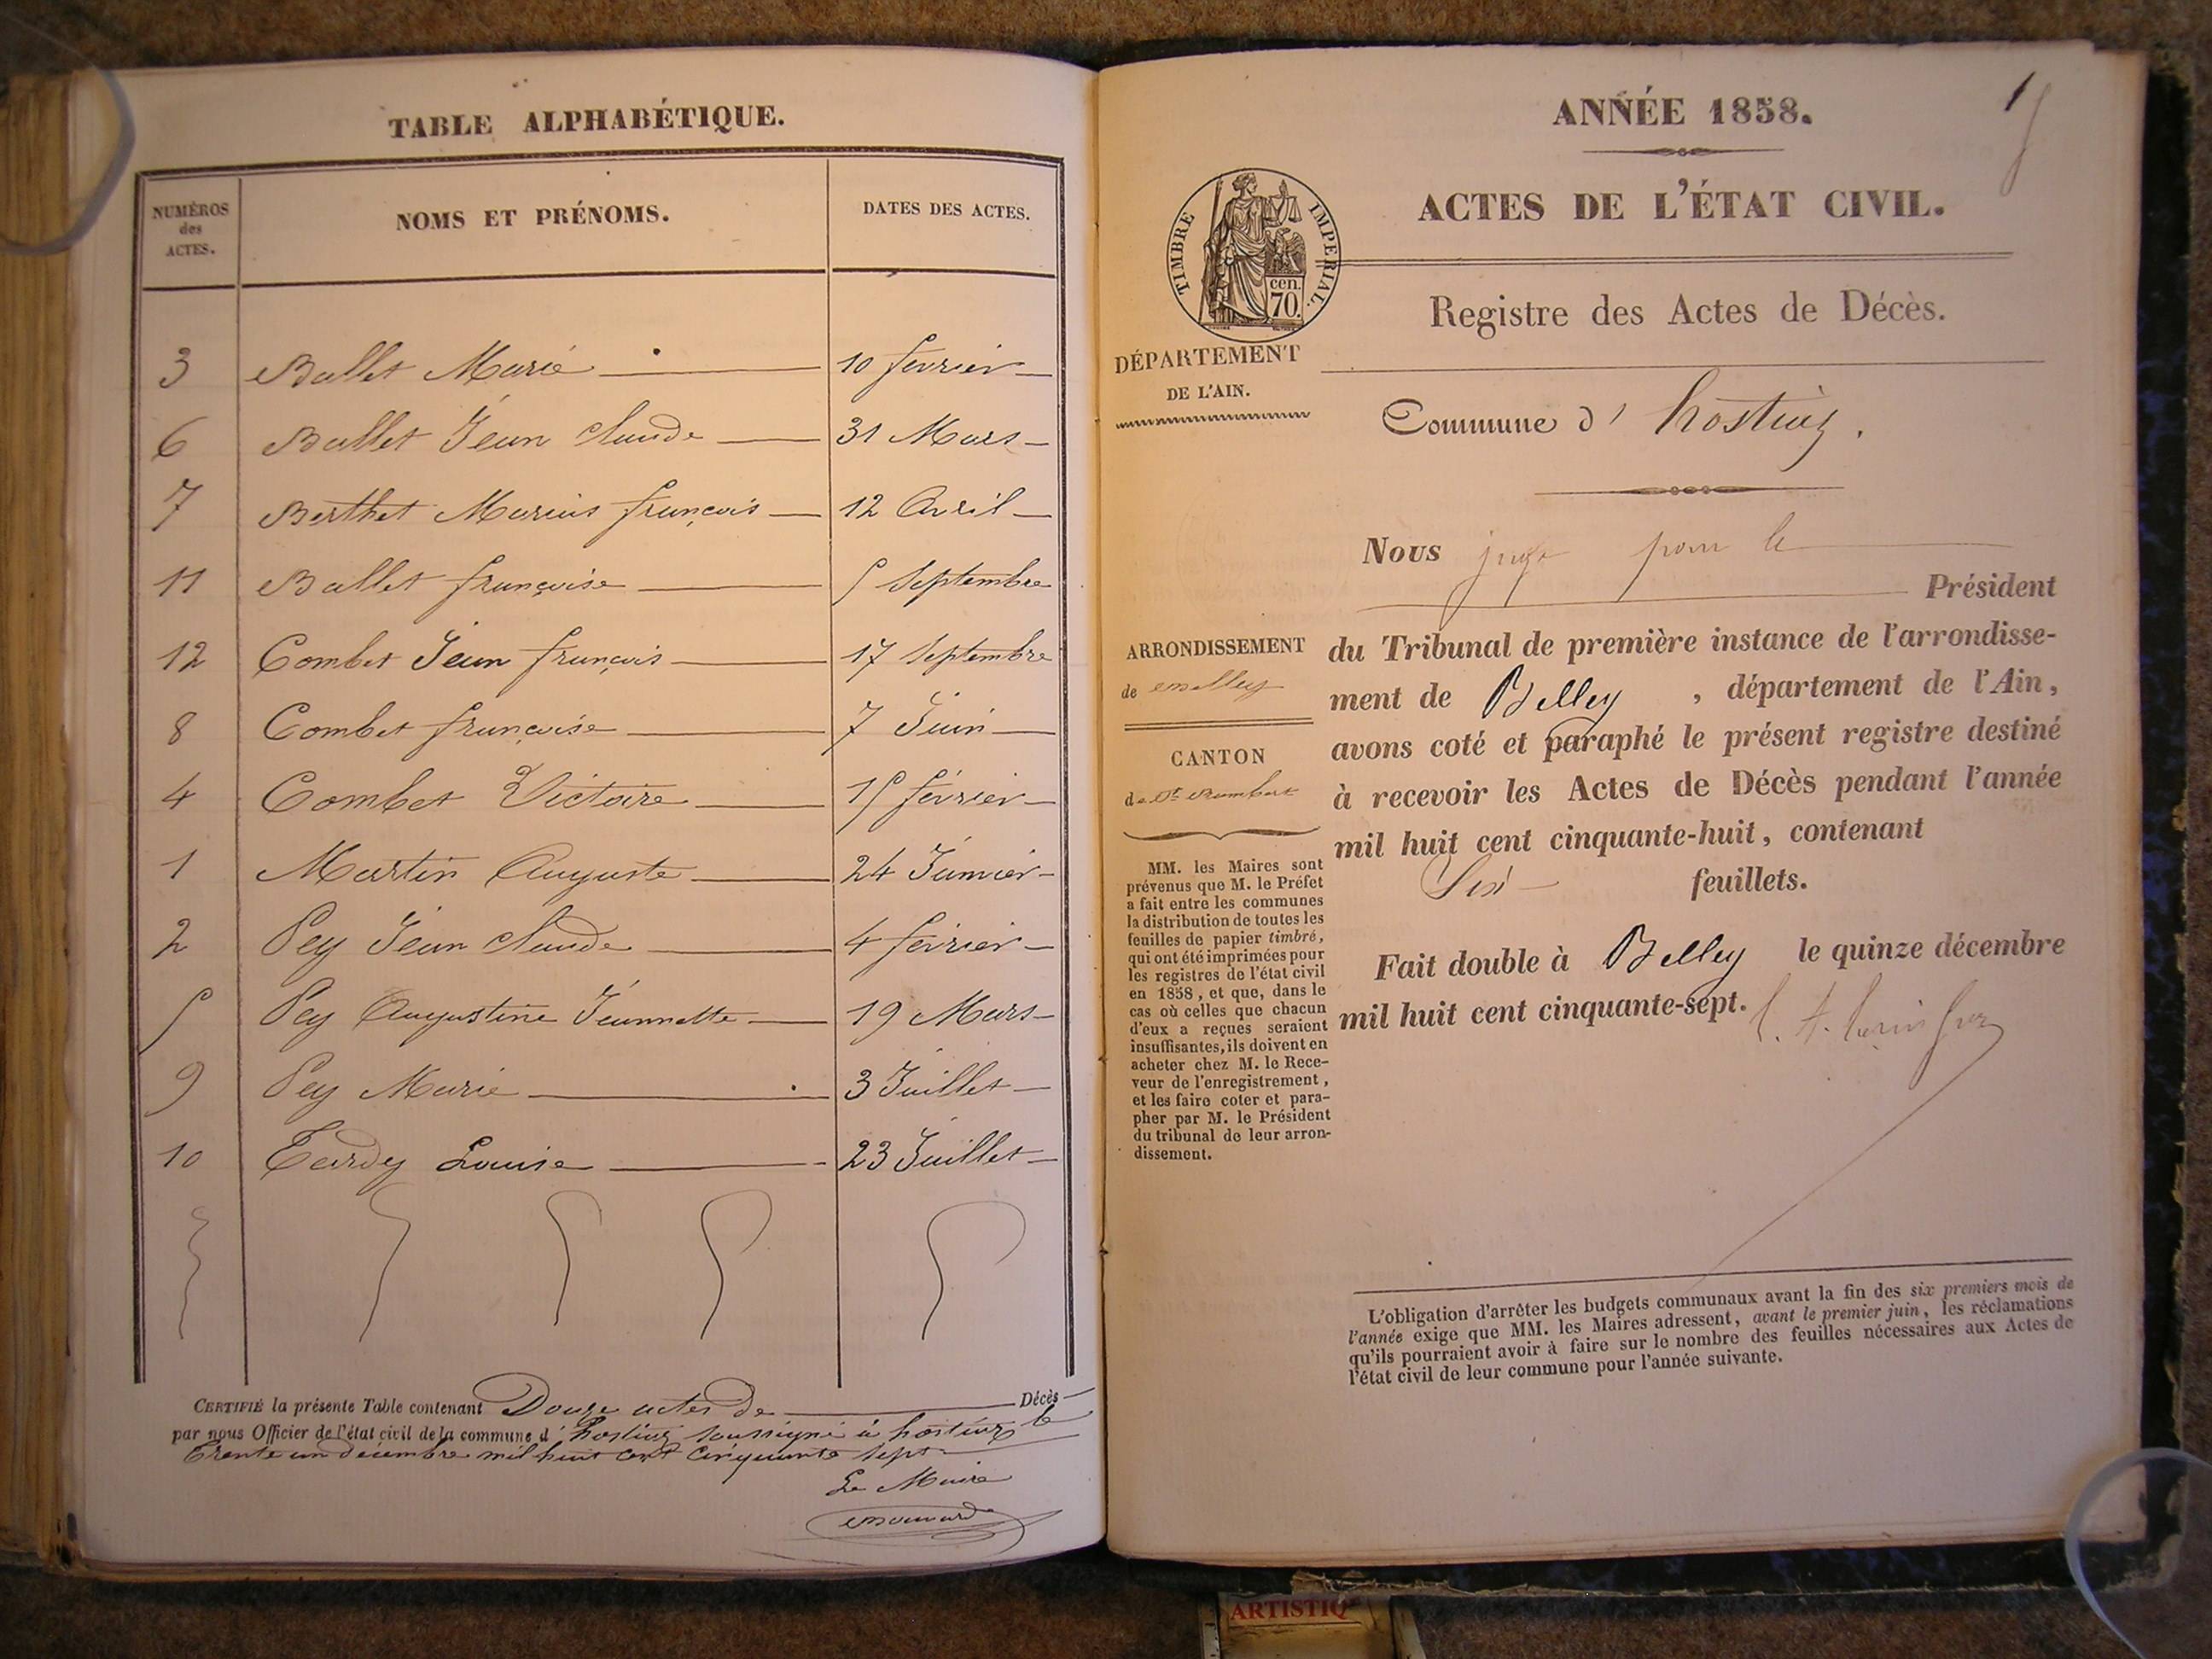 TABLE ALPHABÉTIQUE.
NUMÉROS des ACTES.
NOMS ET PRÉNOMS.
DATES DES ACTES.
3 Ballet Marie 10 février
6 Ballet Jean Claude 31 Mars
7 Berthet Marius françois 12 Avril
11 Ballet françoise 5 Septembre
12 Combet Jean françois 17 Septembre
8 Combet françoise 7 Juin
4 Combet Victoire 15 février
1 Martin Auguste 24 Janvier
2 Pey Jean Claude 4 février
5 Pey Augustine Jeannette 19 Mars
9 Pey Marie 3 Juillet
10 Tardy Louise 23 Juillet
CERTIFIÉ la présente Table contenant Douze actes de Décès
par nous Officier de l'état civil de la commune d' hostiaz soussigné à hostiaz le
trente un décembre mil huit cent cinquante sept
Le Maire
ANNÉE 1858.
ACTES DE L'ÉTAT CIVIL.
TIMBRE IMPERIAL.
cen.
70.
Registre des Actes de Décès.
DÉPARTEMENT
DE L'AIN.
Commune d' hostiaz.
Nous juge pour le
Président
du Tribunal de première instance de l'arrondisse-
ment de Belley, département de l'Ain,
avons coté et paraphé le présent registre destiné
à recevoir les Actes de Décès pendant l'année
mil huit cent cinquante-huit, contenant
Six feuillets.
Fait double à Belley le quinze décembre
mil huit cent cinquante-sept.
ARRONDISSEMENT
de Belley
CANTON
de St Rambert
MM. les Maires sont
prévenus que M. le Préfet
a fait entre les communes
la distribution de toutes les
feuilles de papier timbré,
qui ont été imprimées pour
les registres de l'état civil
en 1858, et que, dans le
cas où celles que chacun
d'eux a reçues seraient
insuffisantes, ils doivent en
acheter chez M. le Rece-
veur de l'enregistrement,
et les faire coter et para-
pher par M. le Président
du tribunal de leur arron-
dissement.
L'obligation d'arrêter les budgets communaux avant la fin des six premiers mois de
l'année exige que MM. les Maires adressent, avant le premier juin, les réclamations
qu'ils pourraient avoir à faire sur le nombre des feuilles nécessaires aux Actes de
l'état civil de leur commune pour l'année suivante.
ARTISTIQ